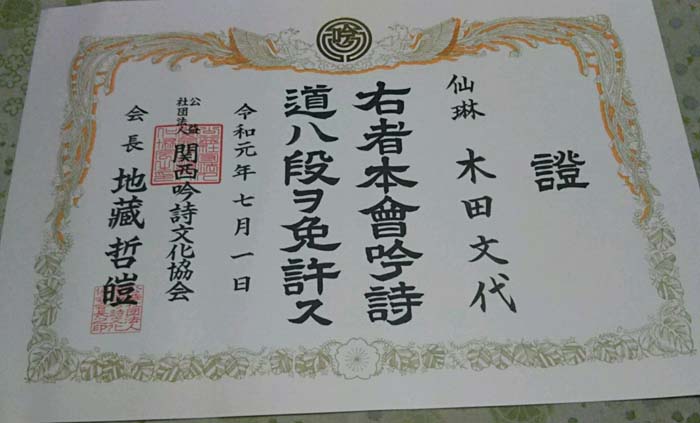 吟
證
仙琳 木田文代
右者本會吟詩
道八段ヲ免許ス
令和元年七月一日
公益社団法人 関西吟詩文化協会
会長 地藏哲皚